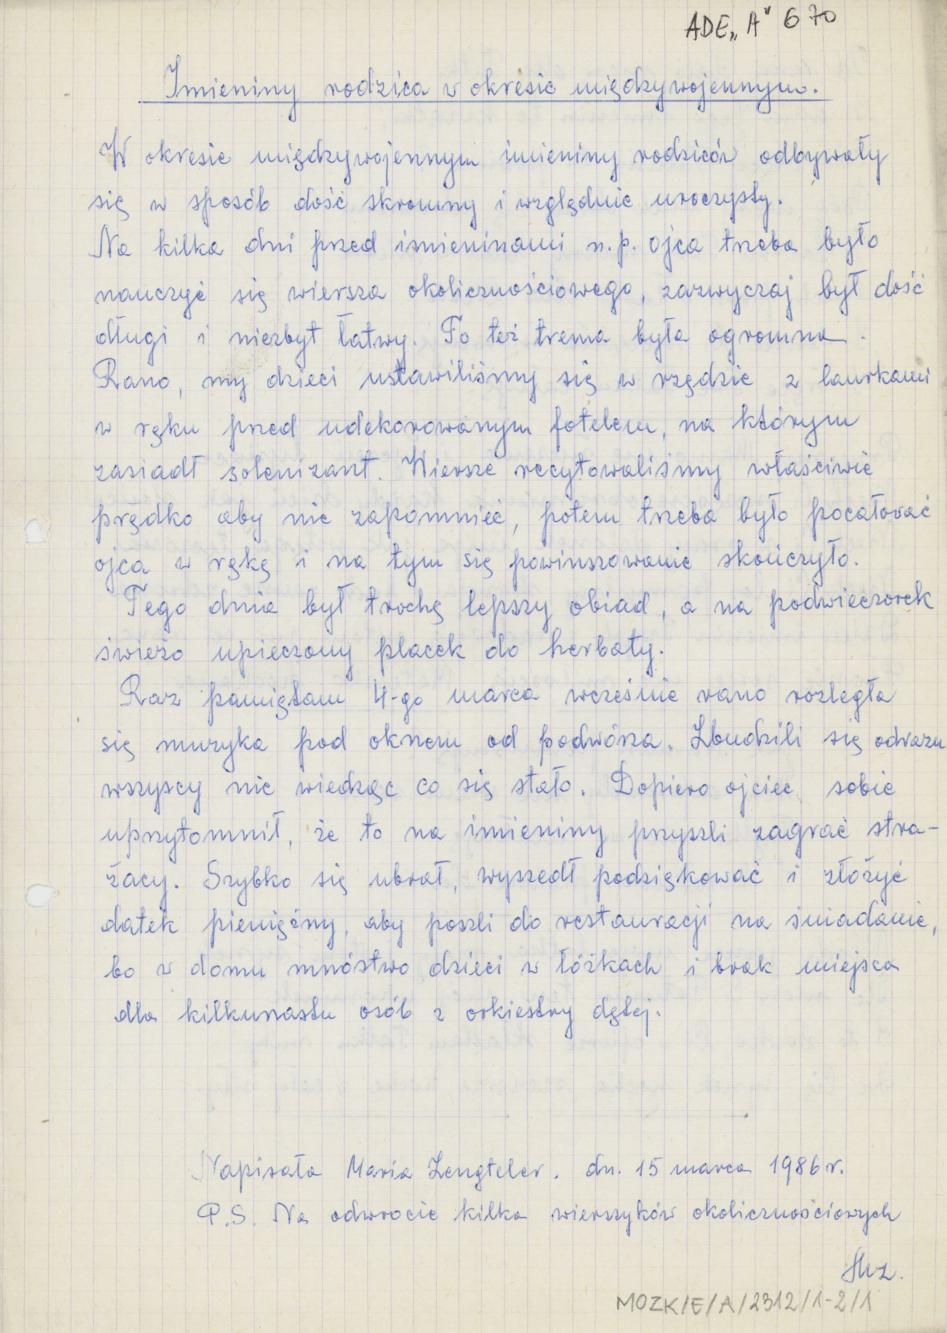 ADE„A" 670
Imieniny rodzica w okresie międzywojennym.
W okresie międzywojennym imieniny rodziców odbywały
się w sposób dość skromny i względnie uroczysty.
Na kilka dni przed imieninami n.p. ojca trzeba było
nauczyć się wiersza okolicznościowego, zazwyczaj był dość
długi i niezbyt łatwy. To też trema była ogromna.
Rano, my dzieci ustawiliśmy się w rzędzie z laurkami
w ręku przed udekorowanym fotelem, na którym
zasiadł solenizant. Wiersze recytowaliśmy właściwie
prędko aby nic zapomnieć, potem trzeba było pocałować
ojca w rękę i na tym się powinszowanie skończyło.
Tego dnia był trochę lepszy obiad, a na podwieczorek
świeżo upieczony placek do herbaty.
Raz pamiętam 4-go marca wcześnie rano rozległa
się muzyka pod oknem od podwórza. Zbudzili się odrazu
wszyscy nie wiedząc co się stało. Dopiero ojciec sobie
uprzytomnił, że to na imieniny przyszli zagrać stra-
żacy. Szybko się ubrał, wyszedł podziękować i złożyć
datek pieniężny, aby poszli do restauracji na śniadanie,
bo w domu mnóstwo dzieci w łóżkach i brak miejsca
dla kilkunastu osób z orkiestry dętej.
Napisała Maria . dn. 15 marca 1986 r.
P.S. Na odwrocie kilka wierszyków okolicznościowych
MOZK/E/A/2312/1-2/1